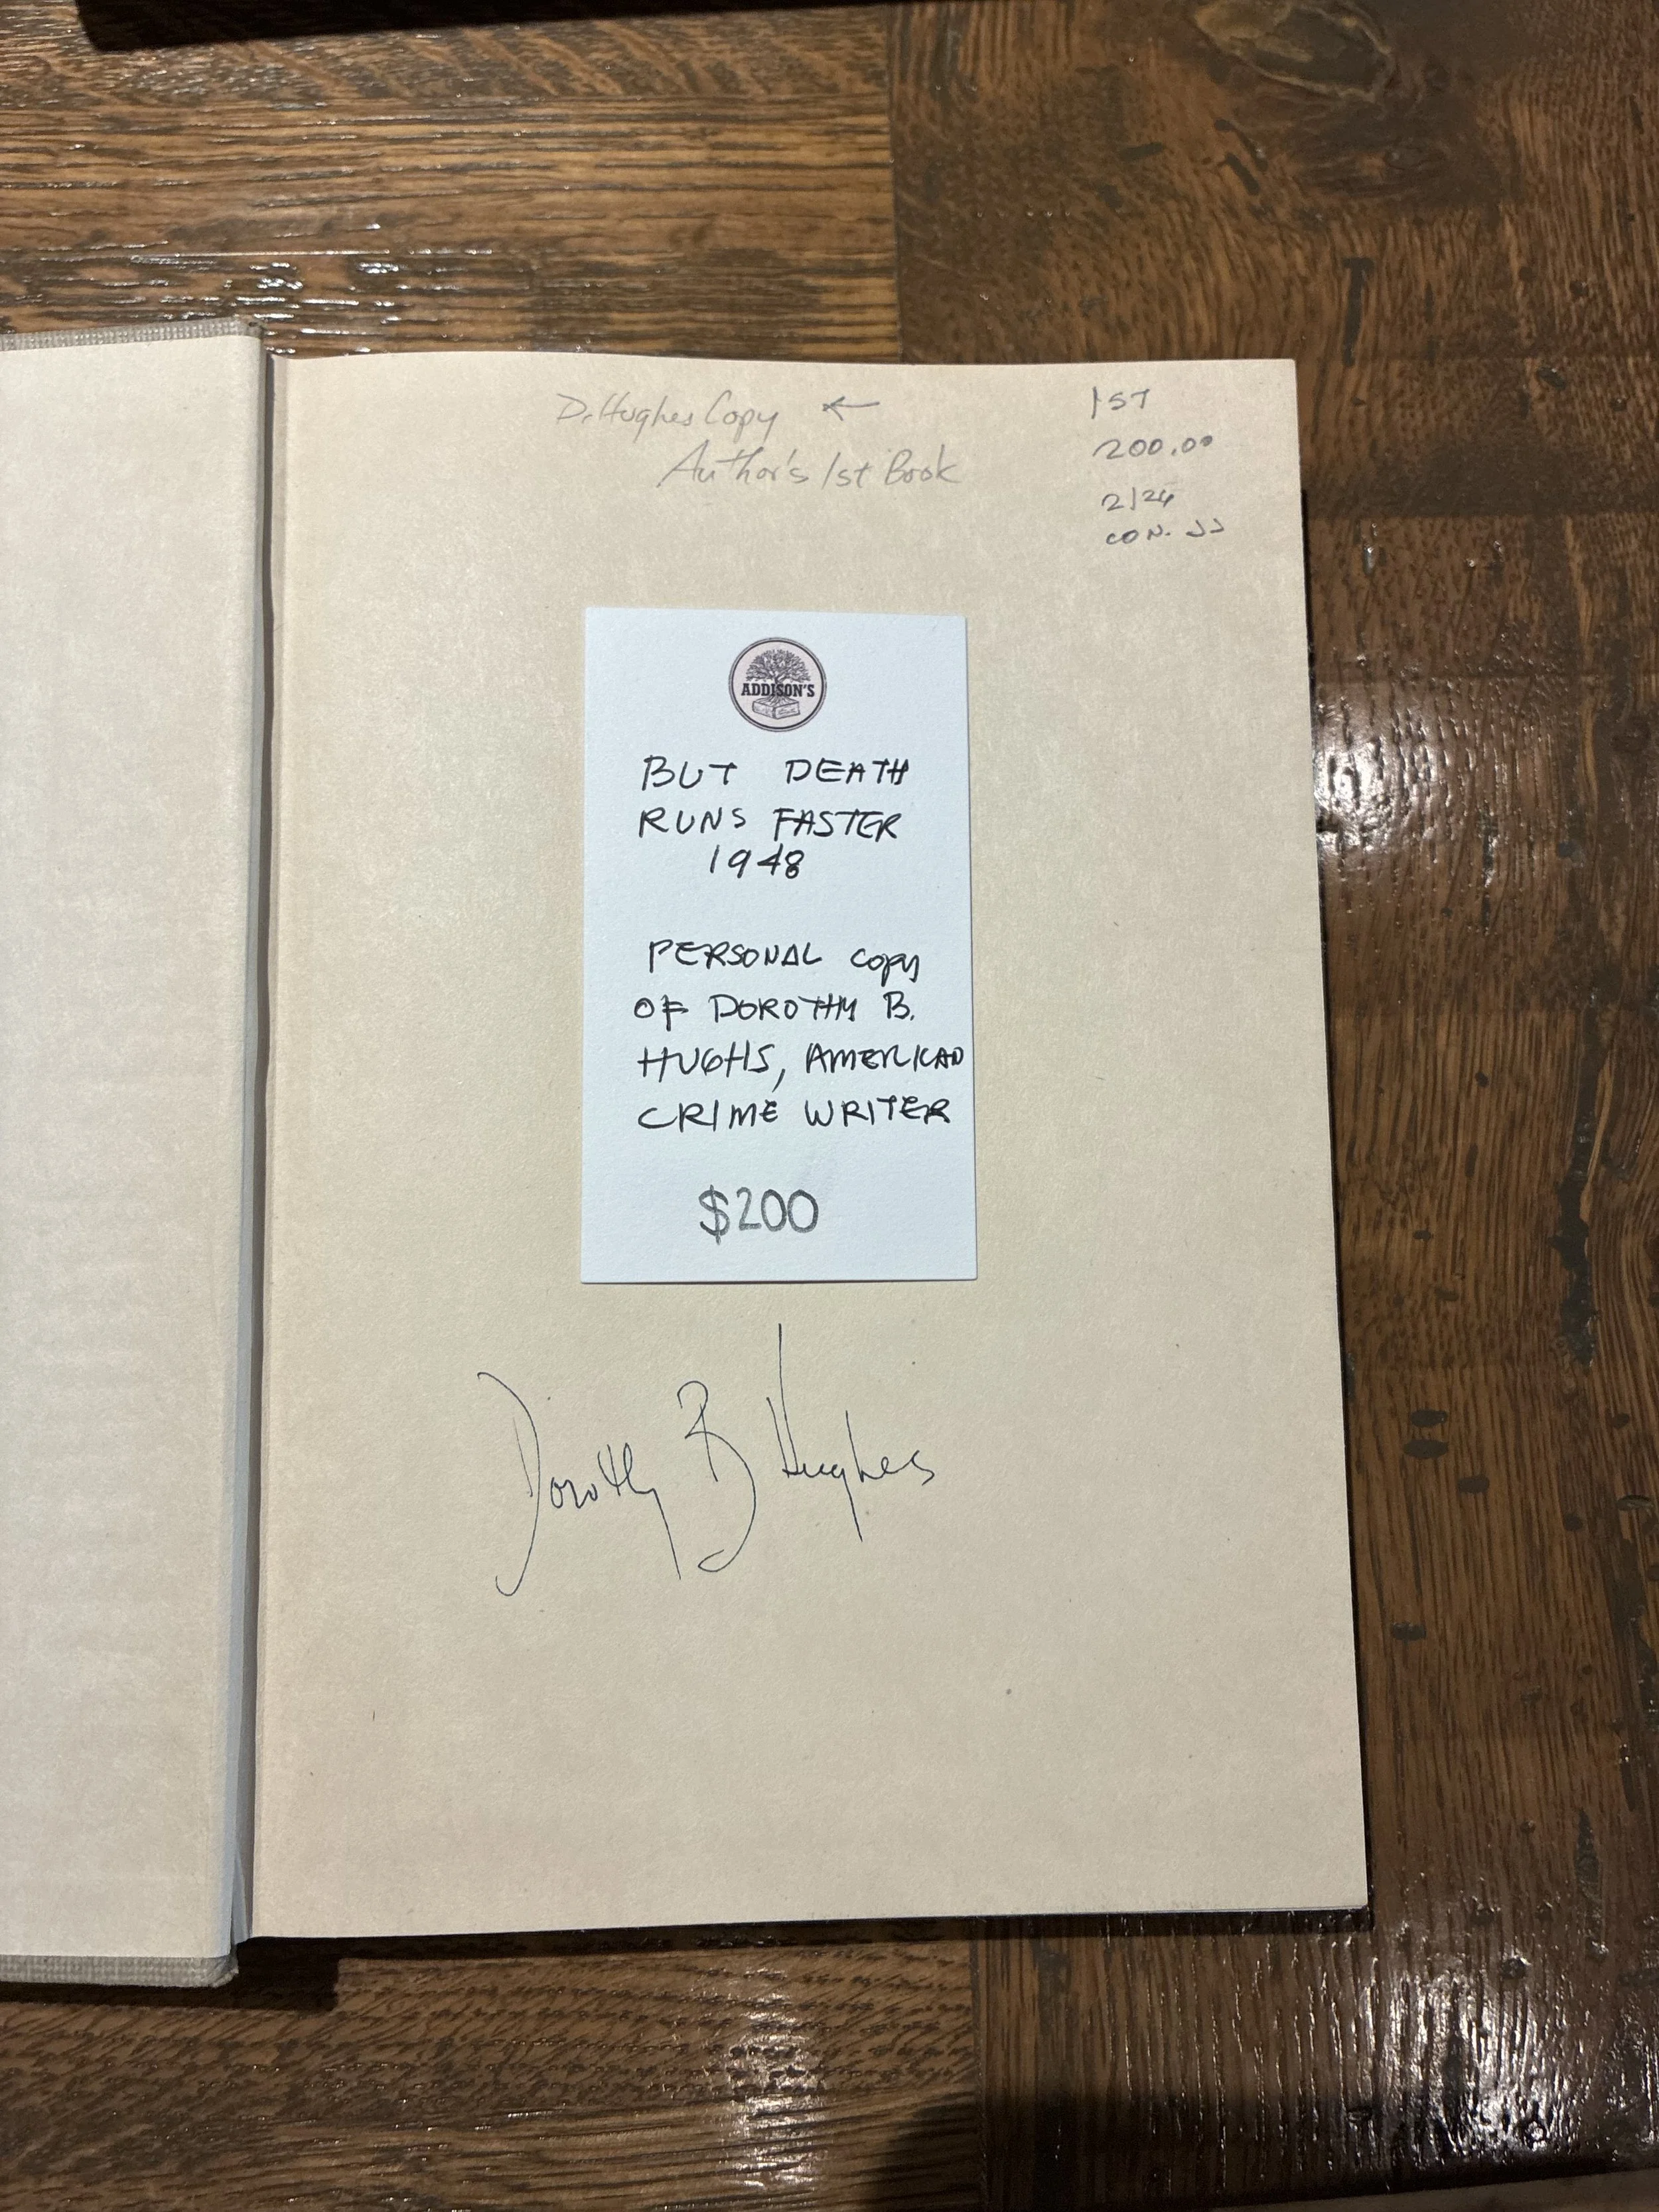 D. Hughes Copy ←
Author's 1st Book
1ST
200.00
2/24
CON. JJ
ADDISON'S
BUT DEATH
RUNS FASTER
1948
PERSONAL copy
OF DOROTHY B.
HUGHS, AMERICAN
CRIME WRITER
$200
Dorothy B Hughes